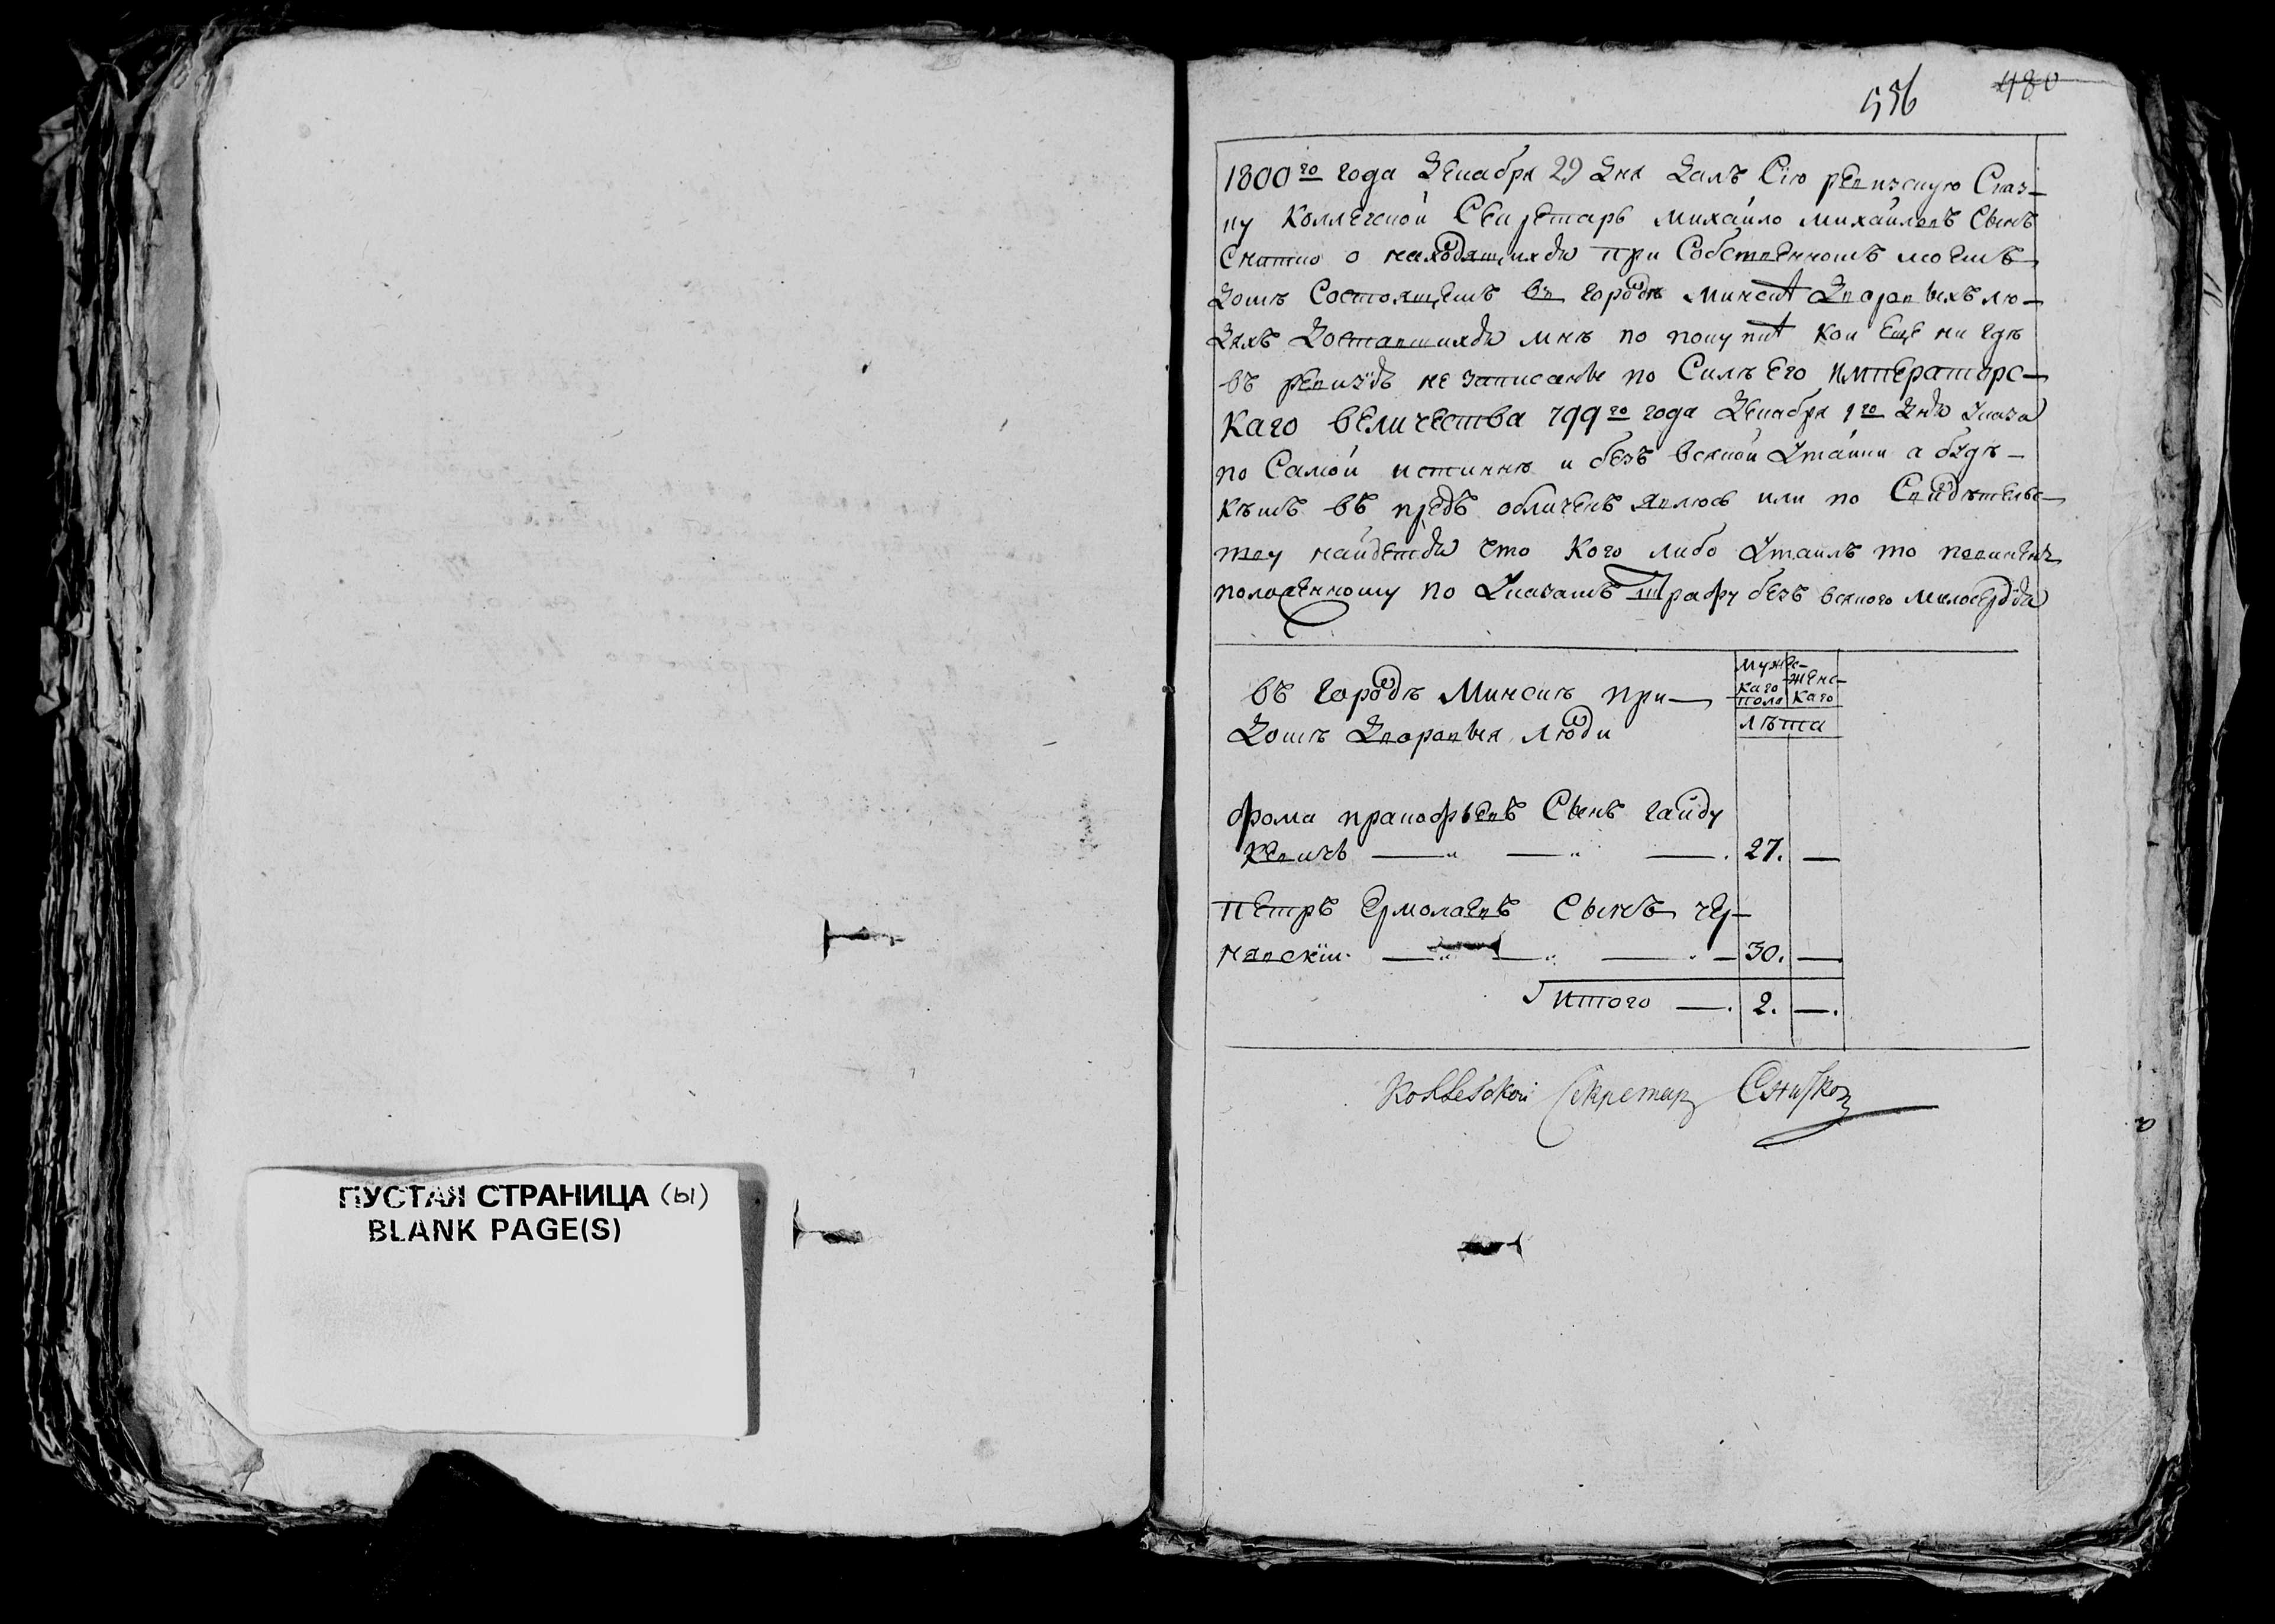 ПУСТАЯ СТРАНИЦА (ы)
BLANK PAGE(S)
556 480
1800го года декабря 29 дня далъ Сию ревизскую Сказ-
ку Коллегской Секретарь михайло михайловъ Сынъ
о находящихся при Собственномъ моемъ
доме Состоящемъ въ городе минске дворовыхъ лю-
дяхъ доставшихся мнѣ по покупке кои еще ни где
въ ревизiи не записаны по Силѣ Его императорс-
Каго величества 799го года декабря 1го дня указа
по Самой истиннѣ и безъ всякой утайки а будѣ
кѣмъ въ предъ обличенъ явлюсь или по Свидѣтельс-
тву найдется что Кого либо утаилъ то повиненъ
положенному по Указамъ Штрафу безъ всякого милосердiя
въ городѣ Минскѣ при
домѣ дворовыя люди
мужес-
каго
пола
женс-
каго
лѣта
фома пракофьевъ Сынъ гайду
кевичъ 27. —
петръ Ермолаевъ Сынъ чер-
нявскiй 30. —
итого — 2. —
Коллежской Секретарь